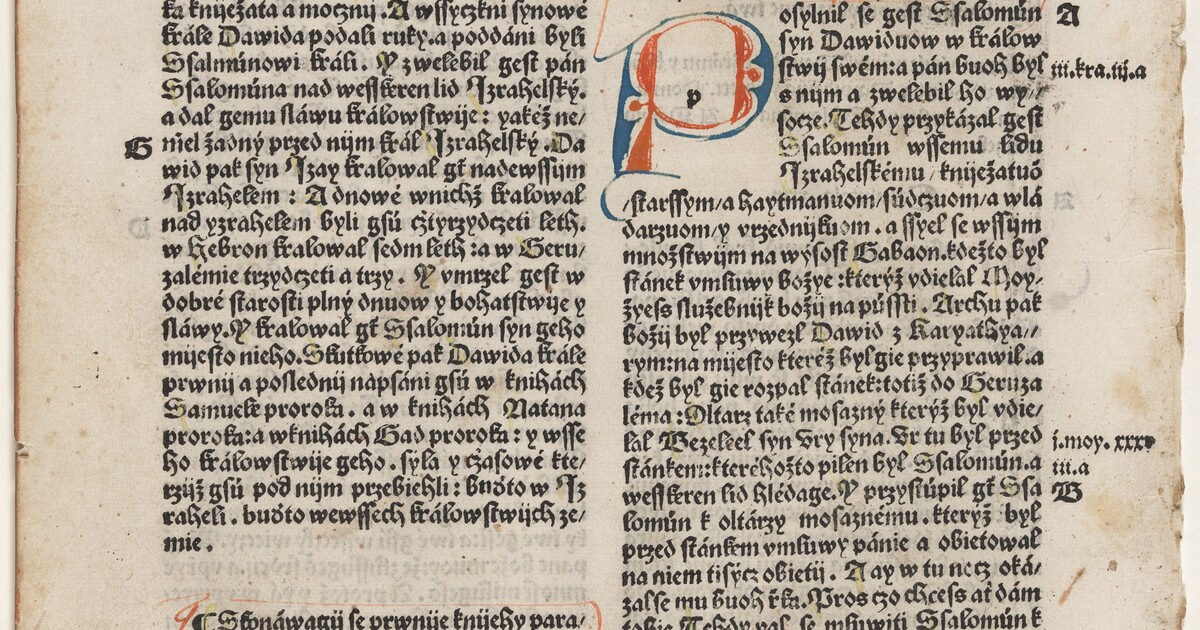 ka kniježata a mocznij . A wssyczkni synowé
krále Dawida podali ruky . a poddáni byli
Ssalmúnowi králi . Y zwelebil gest pán
Ssalomúna nad wesskeren lid Jzrahelský .
a dal gemu sláwu králowstwije : yakéž ne/
G niel žadný przed nijm král Jzrahelský . Da
wid pak syn Jzay kralowal gt̃ nadewssijm
Jzrahelem : A dnowé wnichž kralowal
nad yzrahelem byli gsú cztyrzydczeti leth .
w Hebron kralowal sedm leth : a w Geru/
zalémie trzydczeti a trzy . Y vmrzel gest w
dobré starosti plný dnuow y bohatstwije y
sláwy . Y kralowal gt̃ Ssalomún syn geho
mijesto nieho . Skutkowé pak Dawida krále
prwnij a poslednij napsáni gsú w knihách
Samuele proroka . a w knihách Natana
proroka : a w knihách Gad proroka : y wsse
ho králowstwije geho . syla y czasowé kte/
rzijž gsú pod nijm przebiehli : buďto w Jz
raheli . buďto wewssech králowstwijch ze/
mie .
Skonáwagij se prwnije knijehy para/
p
osylnil se gest Ssalomún A
syn Dawiduow w králow
stwij swém : a pán buoh byl iii.kra.iij.a
s nijm a zwelebil ho wy/
socze . Tehdy przykázal gest
Ssalomún wssemu lidu
Jzrahelskému / kniježatuō
/starssym / a haytmanuom / súdczuom / a wlá
darzuom / y vrzednijkuom . a ssyel se wssijm
množstwijm na wýsost Gabaon . kdežto byl
stánek vmluwy božye : kterýž vdielal Moy/
žyess služebnijk božij na pússti . Archu pak
božij byl przywezl Dawid z Karyathya//
rym : na mijesto kteréž byl gie przyprawil . a
kdež byl gie rozpal stánek : totiž do Geruza
léma : Oltarz také mosazný kterýž byl vdie/
lal Bezeleel syn Vry syna . Vr tu byl przed i.moy. xxxv
stánkem : kteréhožto pilen byl Ssalomún . a iii.a
wesskeren lid hlédage . Y przystúpil gt̃ Ssa B
lomún k oltárzy mosaznému . kterýž byl
przed stánkem vmluwy pánie a obietowal
na niem tisýcz obietij . A ay w tu nocz oká/
zal se mu buoh řka . Pros czo chcess ať dám
tobie Tehdy Ssalomún k